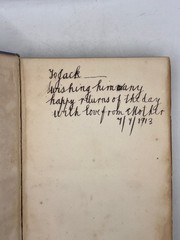 To Jack
Wishing him many
happy returns of the day
with love from Mother
7/7/1913